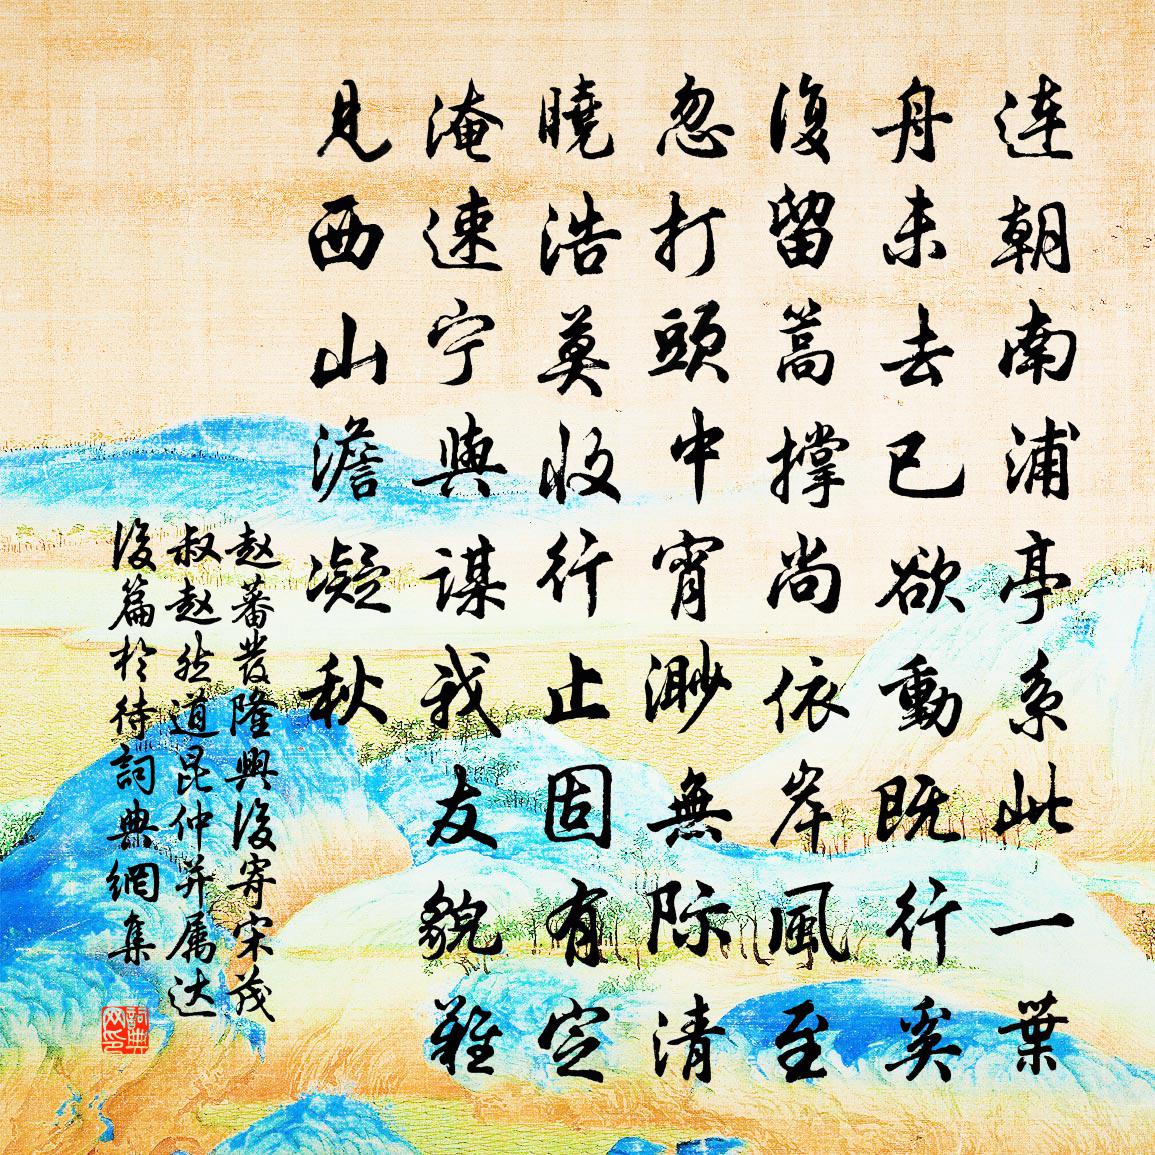 连朝南浦亭系此一葉
舟未去已欲動既行奚
復留篙撑尚依岸風至
忽打頭中宵渺無际清
曉浩莫收行止固有定
淹速宁與謀我友貌難
見西山澹凝秋
赵蕃發隆興後寄宋茂
叔赵然道昆仲并属达
後篇於待詞典網集
詞典网印